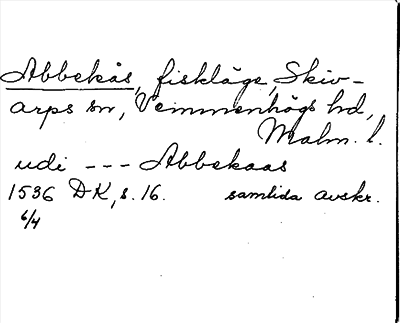 Abbekås, fiskläge, Skiv-
arps sn, Vemmenhögs hd,
Malm. l.
udi --- Abbekaas
1536 DK, s. 16. samtida avskr.
6/4